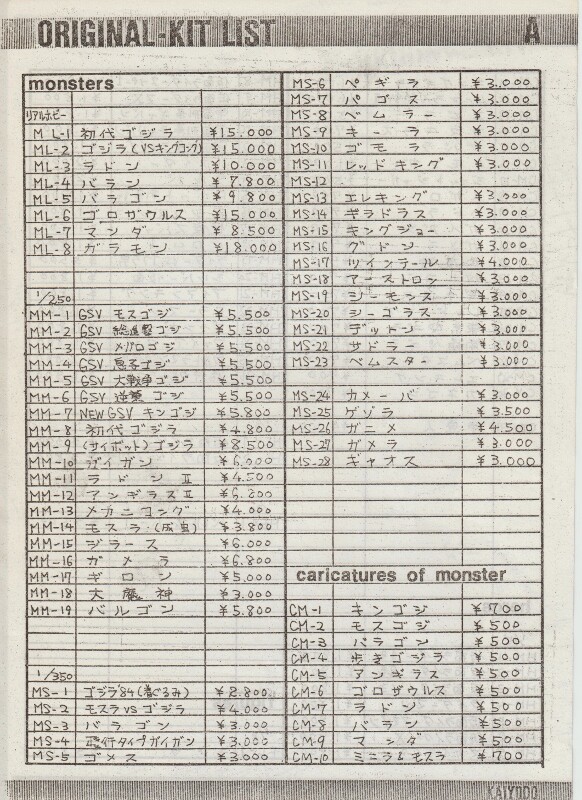 ORIGINAL-KIT LIST A
monsters
リアルホビー
ML-1 初代ゴジラ ¥15.000
ML-2 ゴジラ(VSキングコング) ¥15.000
ML-3 ラドン ¥10.000
ML-4 バラン ¥7.800
ML-5 バラゴン ¥9.800
ML-6 ゴロザウルス ¥15.000
ML-7 マンダ ¥8.500
ML-8 ガラモン ¥18.000
1/250
MM-1 GSV モスゴジ ¥5.500
MM-2 GSV 総進撃ゴジ ¥5.500
MM-3 GSV メガロゴジ ¥5.500
MM-4 GSV 息子ゴジ ¥5.500
MM-5 GSV 大戦争ゴジ ¥5.500
MM-6 GSV 逆襲ゴジ ¥5.500
MM-7 NEW GSV キンゴジ ¥5.800
MM-8 初代ゴジラ ¥4.800
MM-9 (サイボット)ゴジラ ¥8.500
MM-10 ガイガン ¥6.000
MM-11 ラドンⅡ ¥4.500
MM-12 アンギラスⅡ ¥6.200
MM-13 メカニコング ¥4.000
MM-14 モスラ・(成虫) ¥3.800
MM-15 ジラース ¥6.000
MM-16 ガメラ ¥6.800
MM-17 ギロン ¥5.000
MM-18 大魔神 ¥3.000
MM-19 バルゴン ¥5.800
1/350
MS-1 ゴジラ'84(着ぐるみ) ¥2.800
MS-2 モスラVSゴジラ ¥4.000
MS-3 バラゴン ¥3.000
MS-4 飛行タイプガイガン ¥3.000
MS-5 ゴメス ¥3.000
MS-6 ペギラ ¥3.000
MS-7 パゴス ¥3.000
MS-8 ベムラー ¥3.000
MS-9 キーラ ¥3.000
MS-10 ゴモラ ¥3.000
MS-11 レッドキング ¥3.000
MS-12
MS-13 エレキング ¥3.000
MS-14 ギラドラス ¥3.000
MS-15 キングジョー ¥3.000
MS-16 グドン ¥3.000
MS-17 ツインテール ¥4.000
MS-18 アーストロン ¥3.000
MS-19 シーモンス ¥3.000
MS-20 シーゴラス ¥3.000
MS-21 デットン ¥3.000
MS-22 サドラー ¥3.000
MS-23 ベムスター ¥3.000
MS-24 カメーバ ¥3.000
MS-25 ゲゾラ ¥3.500
MS-26 ガニメ ¥4.500
MS-27 ガメラ ¥3.000
MS-28 ギャオス ¥3.000
caricatures of monster
CM-1 キンゴジ ¥700
CM-2 モスゴジ ¥500
CM-3 バラゴン ¥500
CM-4 歩きゴジラ ¥500
CM-5 アンギラス ¥500
CM-6 ゴロザウルス ¥500
CM-7 ラドン ¥500
CM-8 バラン ¥500
CM-9 マンダ ¥500
CM-10 ミニラ&モスラ ¥700
KAIYODO